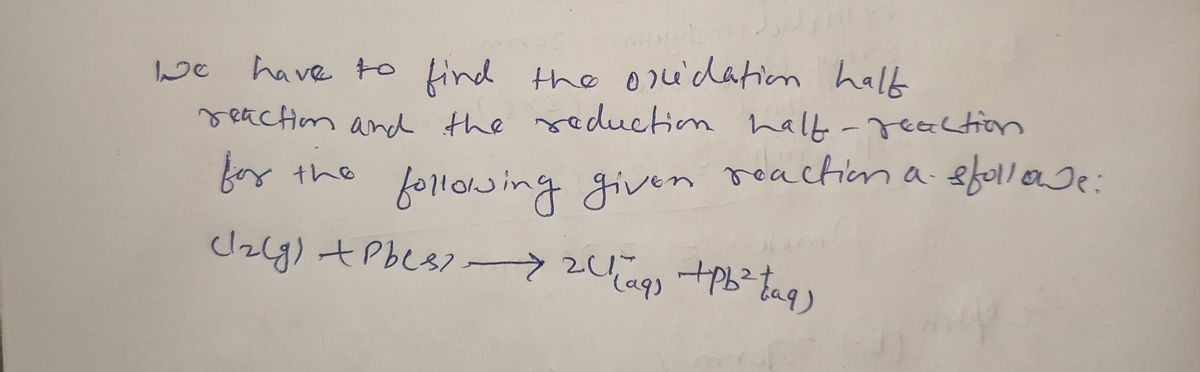 We have to find the oxidation half
reaction and the reduction half-reaction
for the following given reaction as follows:
Cl₂(g) + Pb(s) → 2Cl⁻(aq) + Pb²⁺(aq)